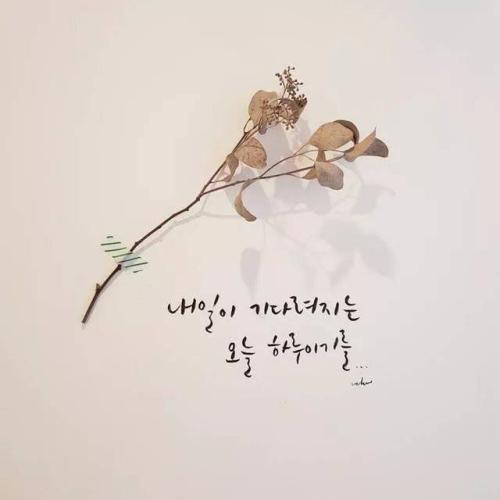 내일이 기다려지는
오늘 하루이기를...